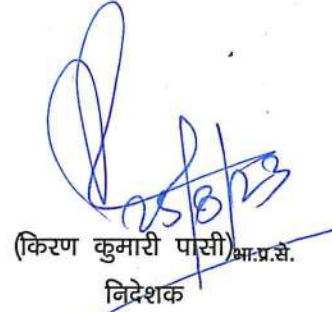 25/8/23
(किरण कुमारी पासी)भा.प्र.से.
निदेशक